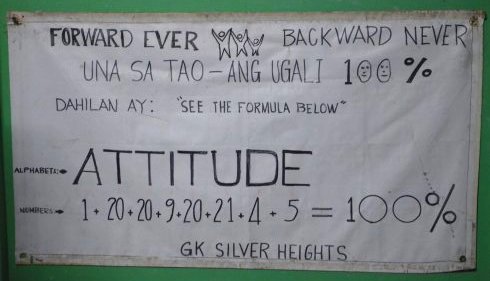 FORWARD EVER BACKWARD NEVER
UNA SA TAO - ANG UGALI 100 %
DAHILAN AY: "SEE THE FORMULA BELOW"
ALPHABETS: ATTITUDE
NUMBERS 1+20+20+9+20+21+4+5 = 100%
GK SILVER HEIGHTS